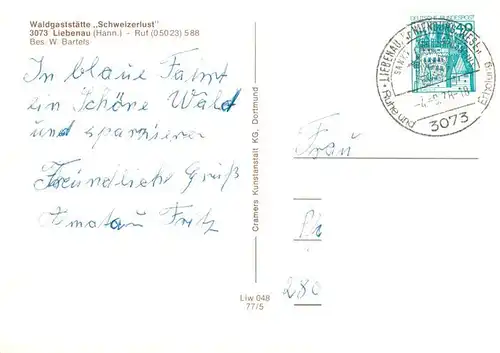 Waldgaststätte „Schweizerlust"
3073 Liebenau (Hann.) - Ruf (05023) 588
Bes. W. Bartels
In blaue Fahrt
ein Schöne Wald
und spazieren
Freundliche Gruß
Fritz
Cramers Kunstanstalt KG, Dortmund
Liw 048
77/5
DEUTSCHE BUNDESPOST
LIEBENAU
Ruhe und
Erholung
3073
Frau
280